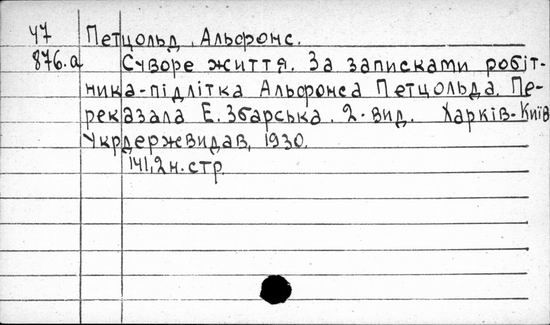 47 Петцольд, Альфонс.
876.а Суворе життя. За записками робіт-
ника-підлітка Альфонса Петцольда. Пе-
реказала Е. Збарська. 2-вид. Харків-Київ
Укрдержвидав, 1930.
141, 2 н. стр.